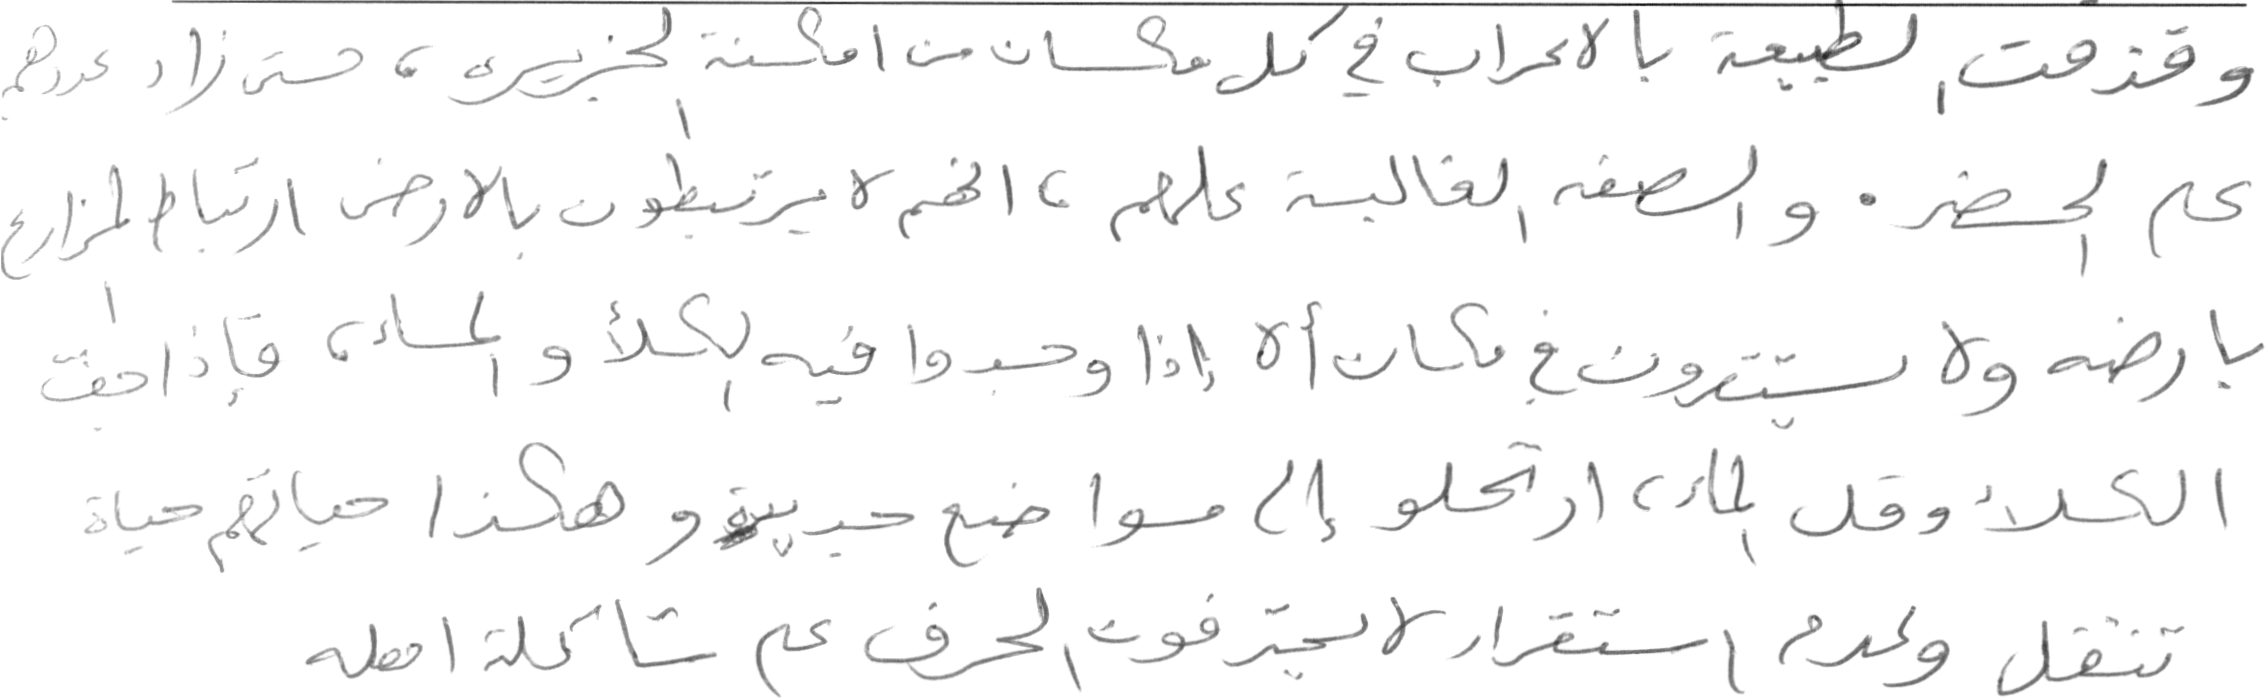 وقذفت الطبيعة بالاعراب في كل مكان من امكنة الجزيرة، حتى زاد عددهم
على الحضر. والصفه الغالبة عليهم، انهم لا يرتبطون بالارض ارتباط المزارع
بارضه ولا يستقرون في مكان ألا إذا وجدوا فيه الكلأ والماء، فإذا جفت
الكلأ وقل الماء، ارتحلو إلى مواضع جديدة وهكذا حياتهم حياة
تنقل وعدم استقرار لا يحترفون الحرف على شاكلة اهله